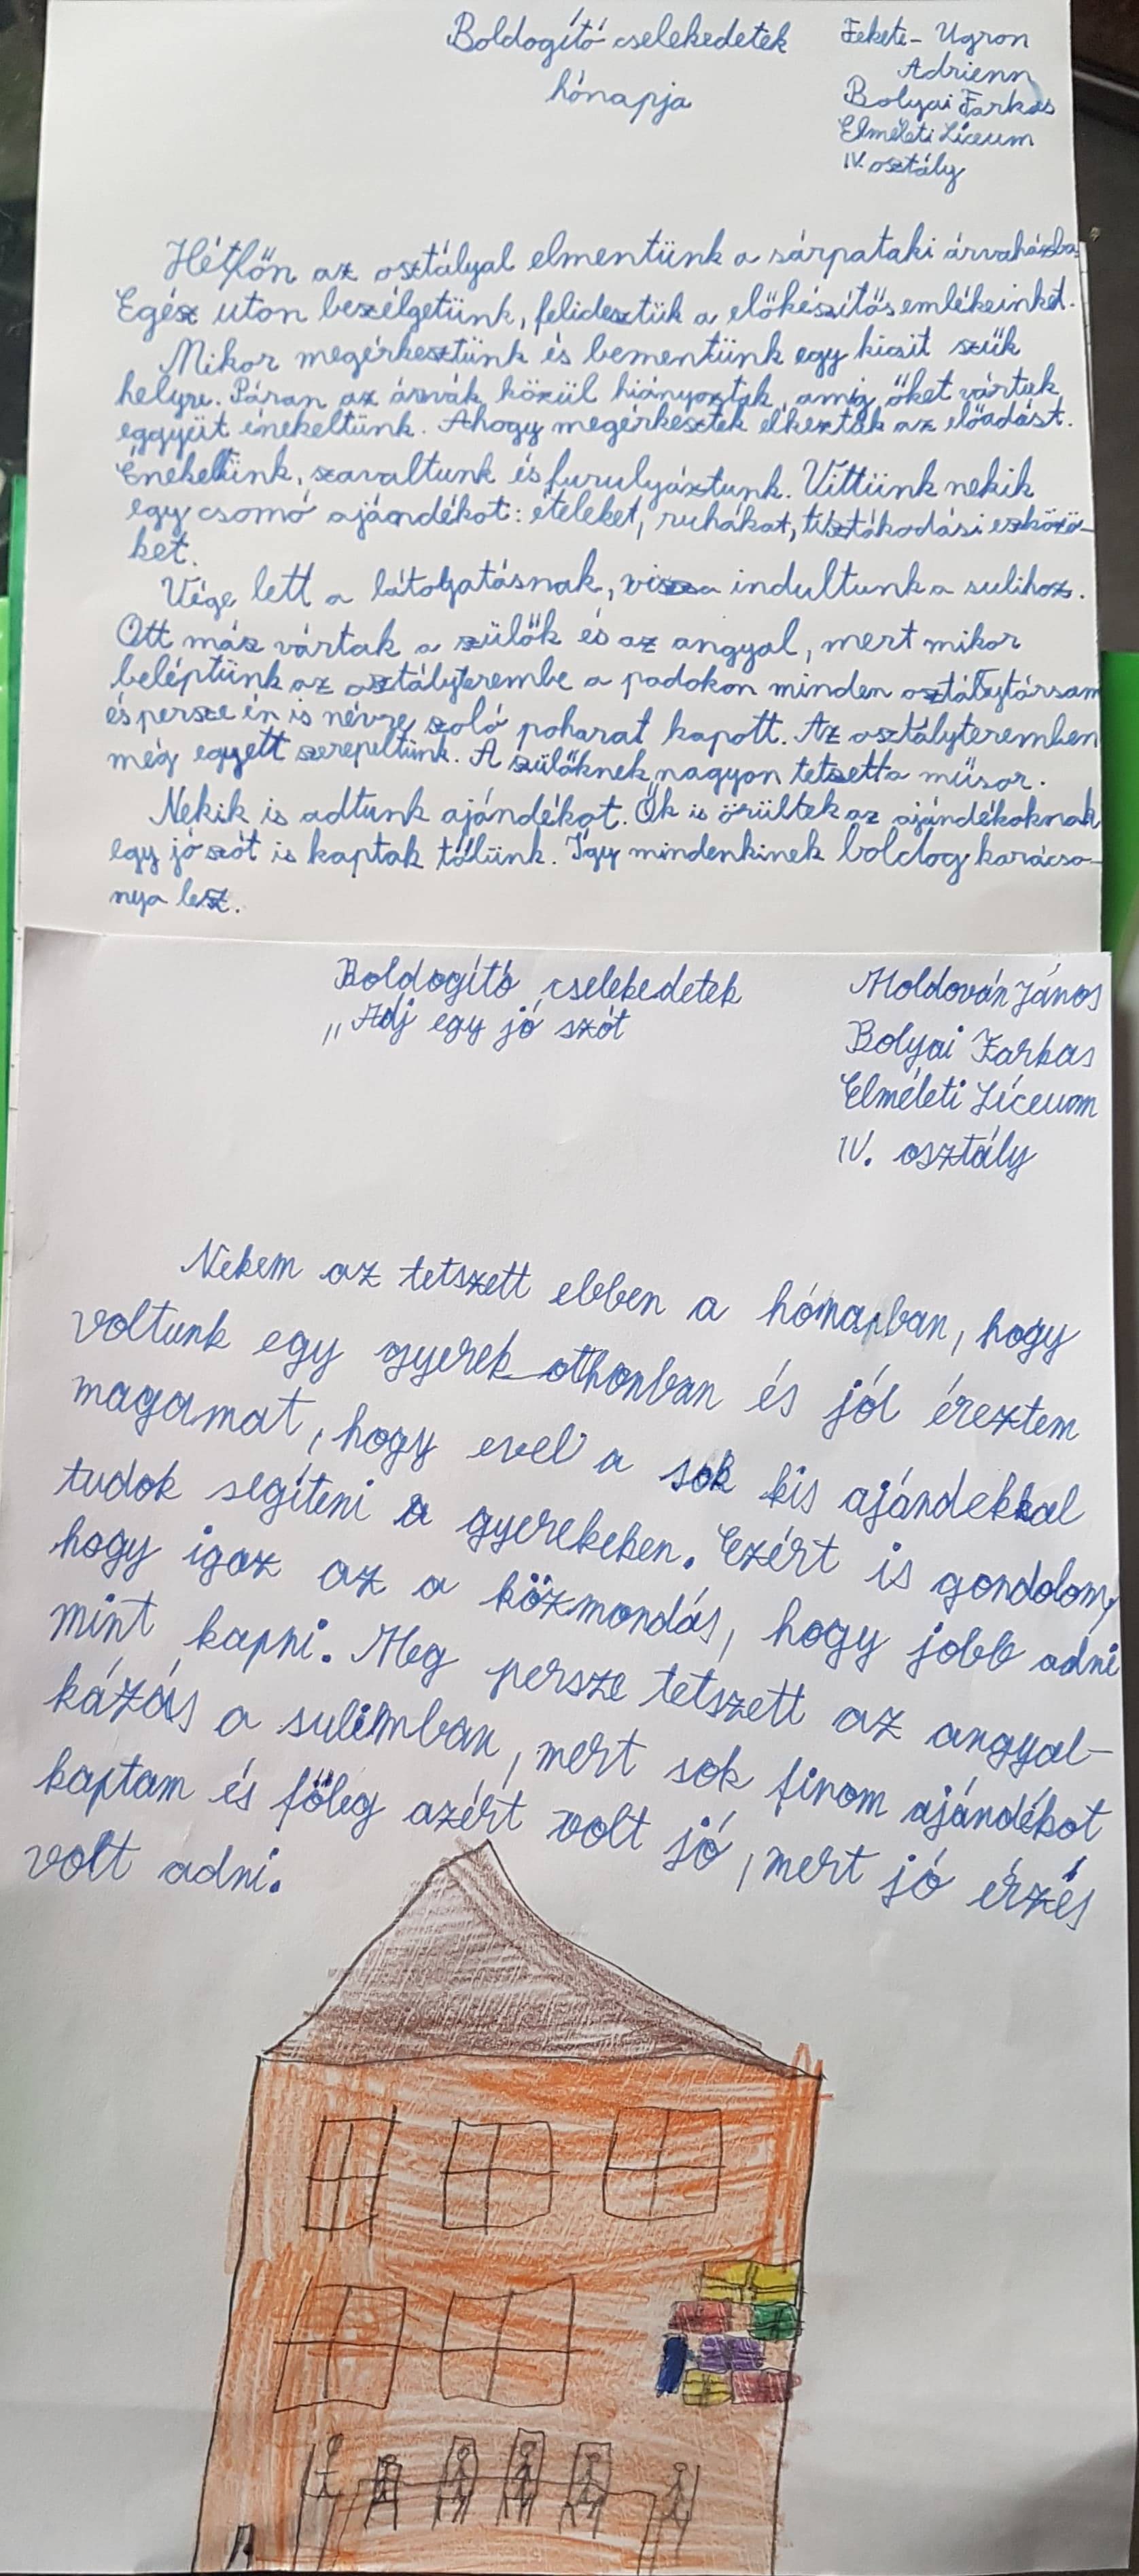 Boldogító cselekedetek
hónapja
Fekete-Ugron
Adrienn
Bolyai Farkas
Elméleti Líceum
IV. osztály
Hétfőn az osztályal elmentünk a sárpataki árvaházba.
Egész uton beszélgetünk, felidesztük a előkészítős emlékeinket.
Mikor megérkesztünk és bementünk egy kicsit szük
helyre. Páran az árvák közül hiányoztak, amig őket vártuk
eggyüt énekeltünk. Ahogy megérkesztek elkezták az előadást.
Énekeltünk, szavaltunk és furulyáztunk. Vittünk nekik
egy csomó ajándékot: ételeket, ruhákat, tisztákodási eszközö-
ket.
Vége lett a látogatásnak, vissza indultunk a sulihoz.
Ott már vártak a szülők és az angyal, mert mikor
beléptünk az osztályterembe a padokon minden osztálytársam
és persze én is névre szoló poharat kapott. Az osztályteremben
még egyett szerepeltünk. A szülőknek nagyon tetsett a műsor.
Nekik is adtunk ajándékot. Ők is örültek az ajándékoknak
egy jó szót is kaptak tőlünk. Így mindenkinek boldog karácso-
nya lesz.
Boldogító cselekedetek
„Adj egy jó szót
Moldován János
Bolyai Farkas
Elméleti Líceum
IV. osztály
Nekem az tetszett ebben a hónapban, hogy
voltunk egy gyerek othonban és jól éreztem
magamat, hogy evel a sok kis ajándekkal
tudok segíteni a gyerekeken. Ezért is gondolom,
hogy igaz az a közmondás, hogy jobb adni
mint kapni. Meg persze tetszett az angyal-
kázás a sulimban, mert sok finom ajándékot
kaptam és főleg azért volt jó, mert jó érzés
volt adni.